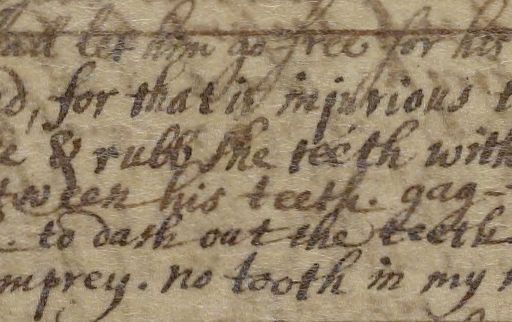 shall let him go free for his
d, for that is injurious t
e & rubb the teeth with
tween his teeth. gag-
. to dash out the teeth.
mprey. no tooth in my